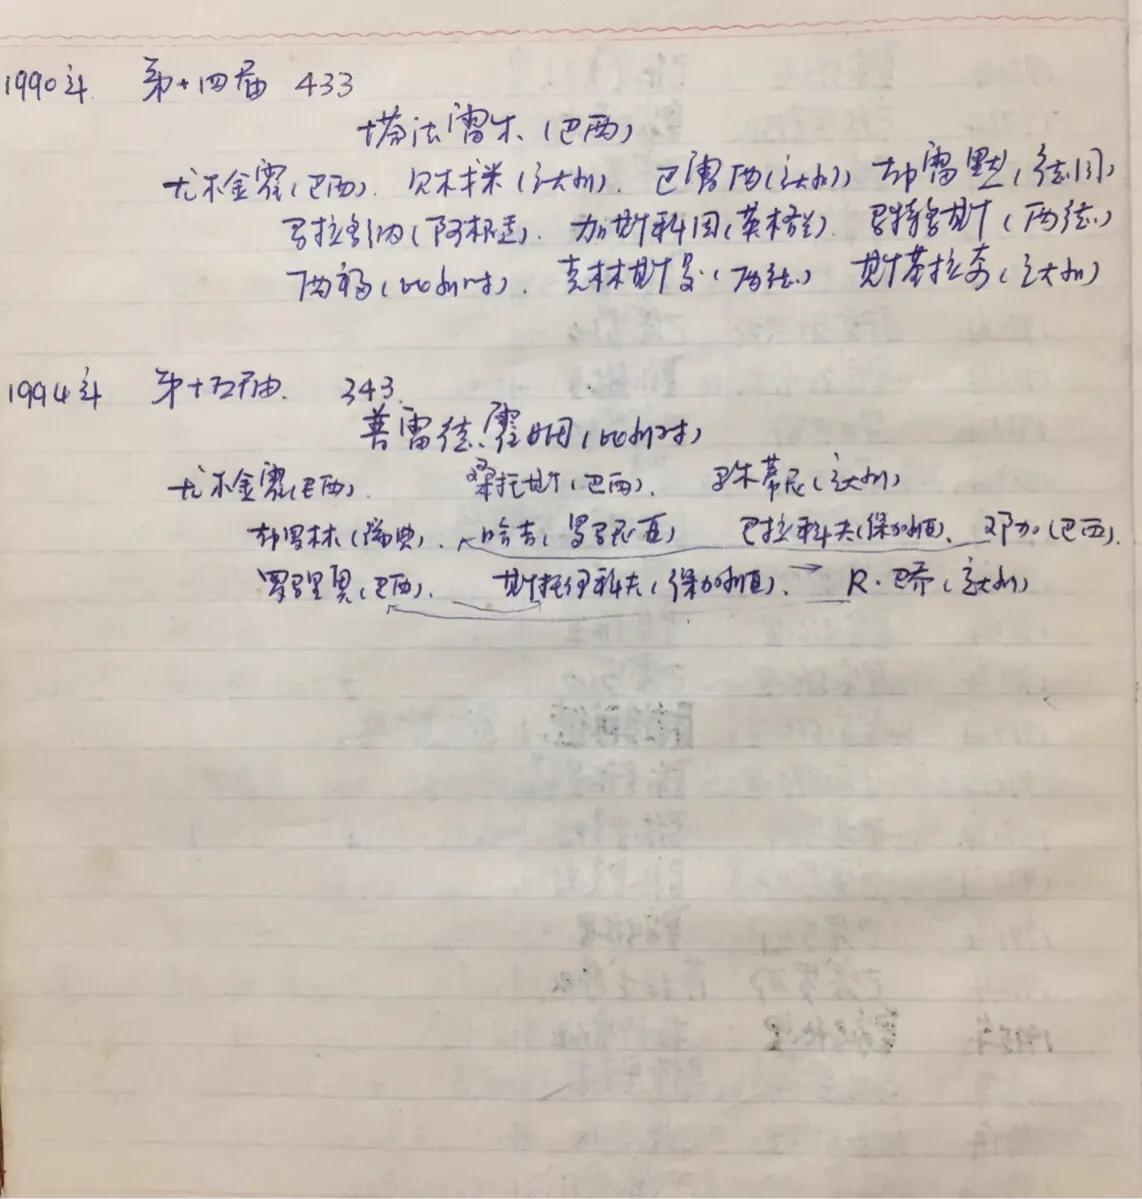 1990年 第十四届 433
塔法雷尔(巴西)
尤尔金霍(巴西). 贝尔格米(意大利). 巴雷西(意大利) 布雷默(德国)
马拉多纳(阿根廷). 加斯科因(英格兰). 马特乌斯(西德)
西福(比利时). 克林斯曼(西德) 斯基拉奇(意大利)
1994年 第十五届. 343.
普雷德霍姆(比利时)
尤尔金霍(巴西). 桑托斯(巴西). 马尔蒂尼(意大利)
布罗林(瑞典). 哈吉(罗马尼亚) 巴拉科夫(保加利亚). 邓加(巴西).
罗马里奥(巴西). 斯托伊科夫(保加利亚). R·巴乔(意大利)